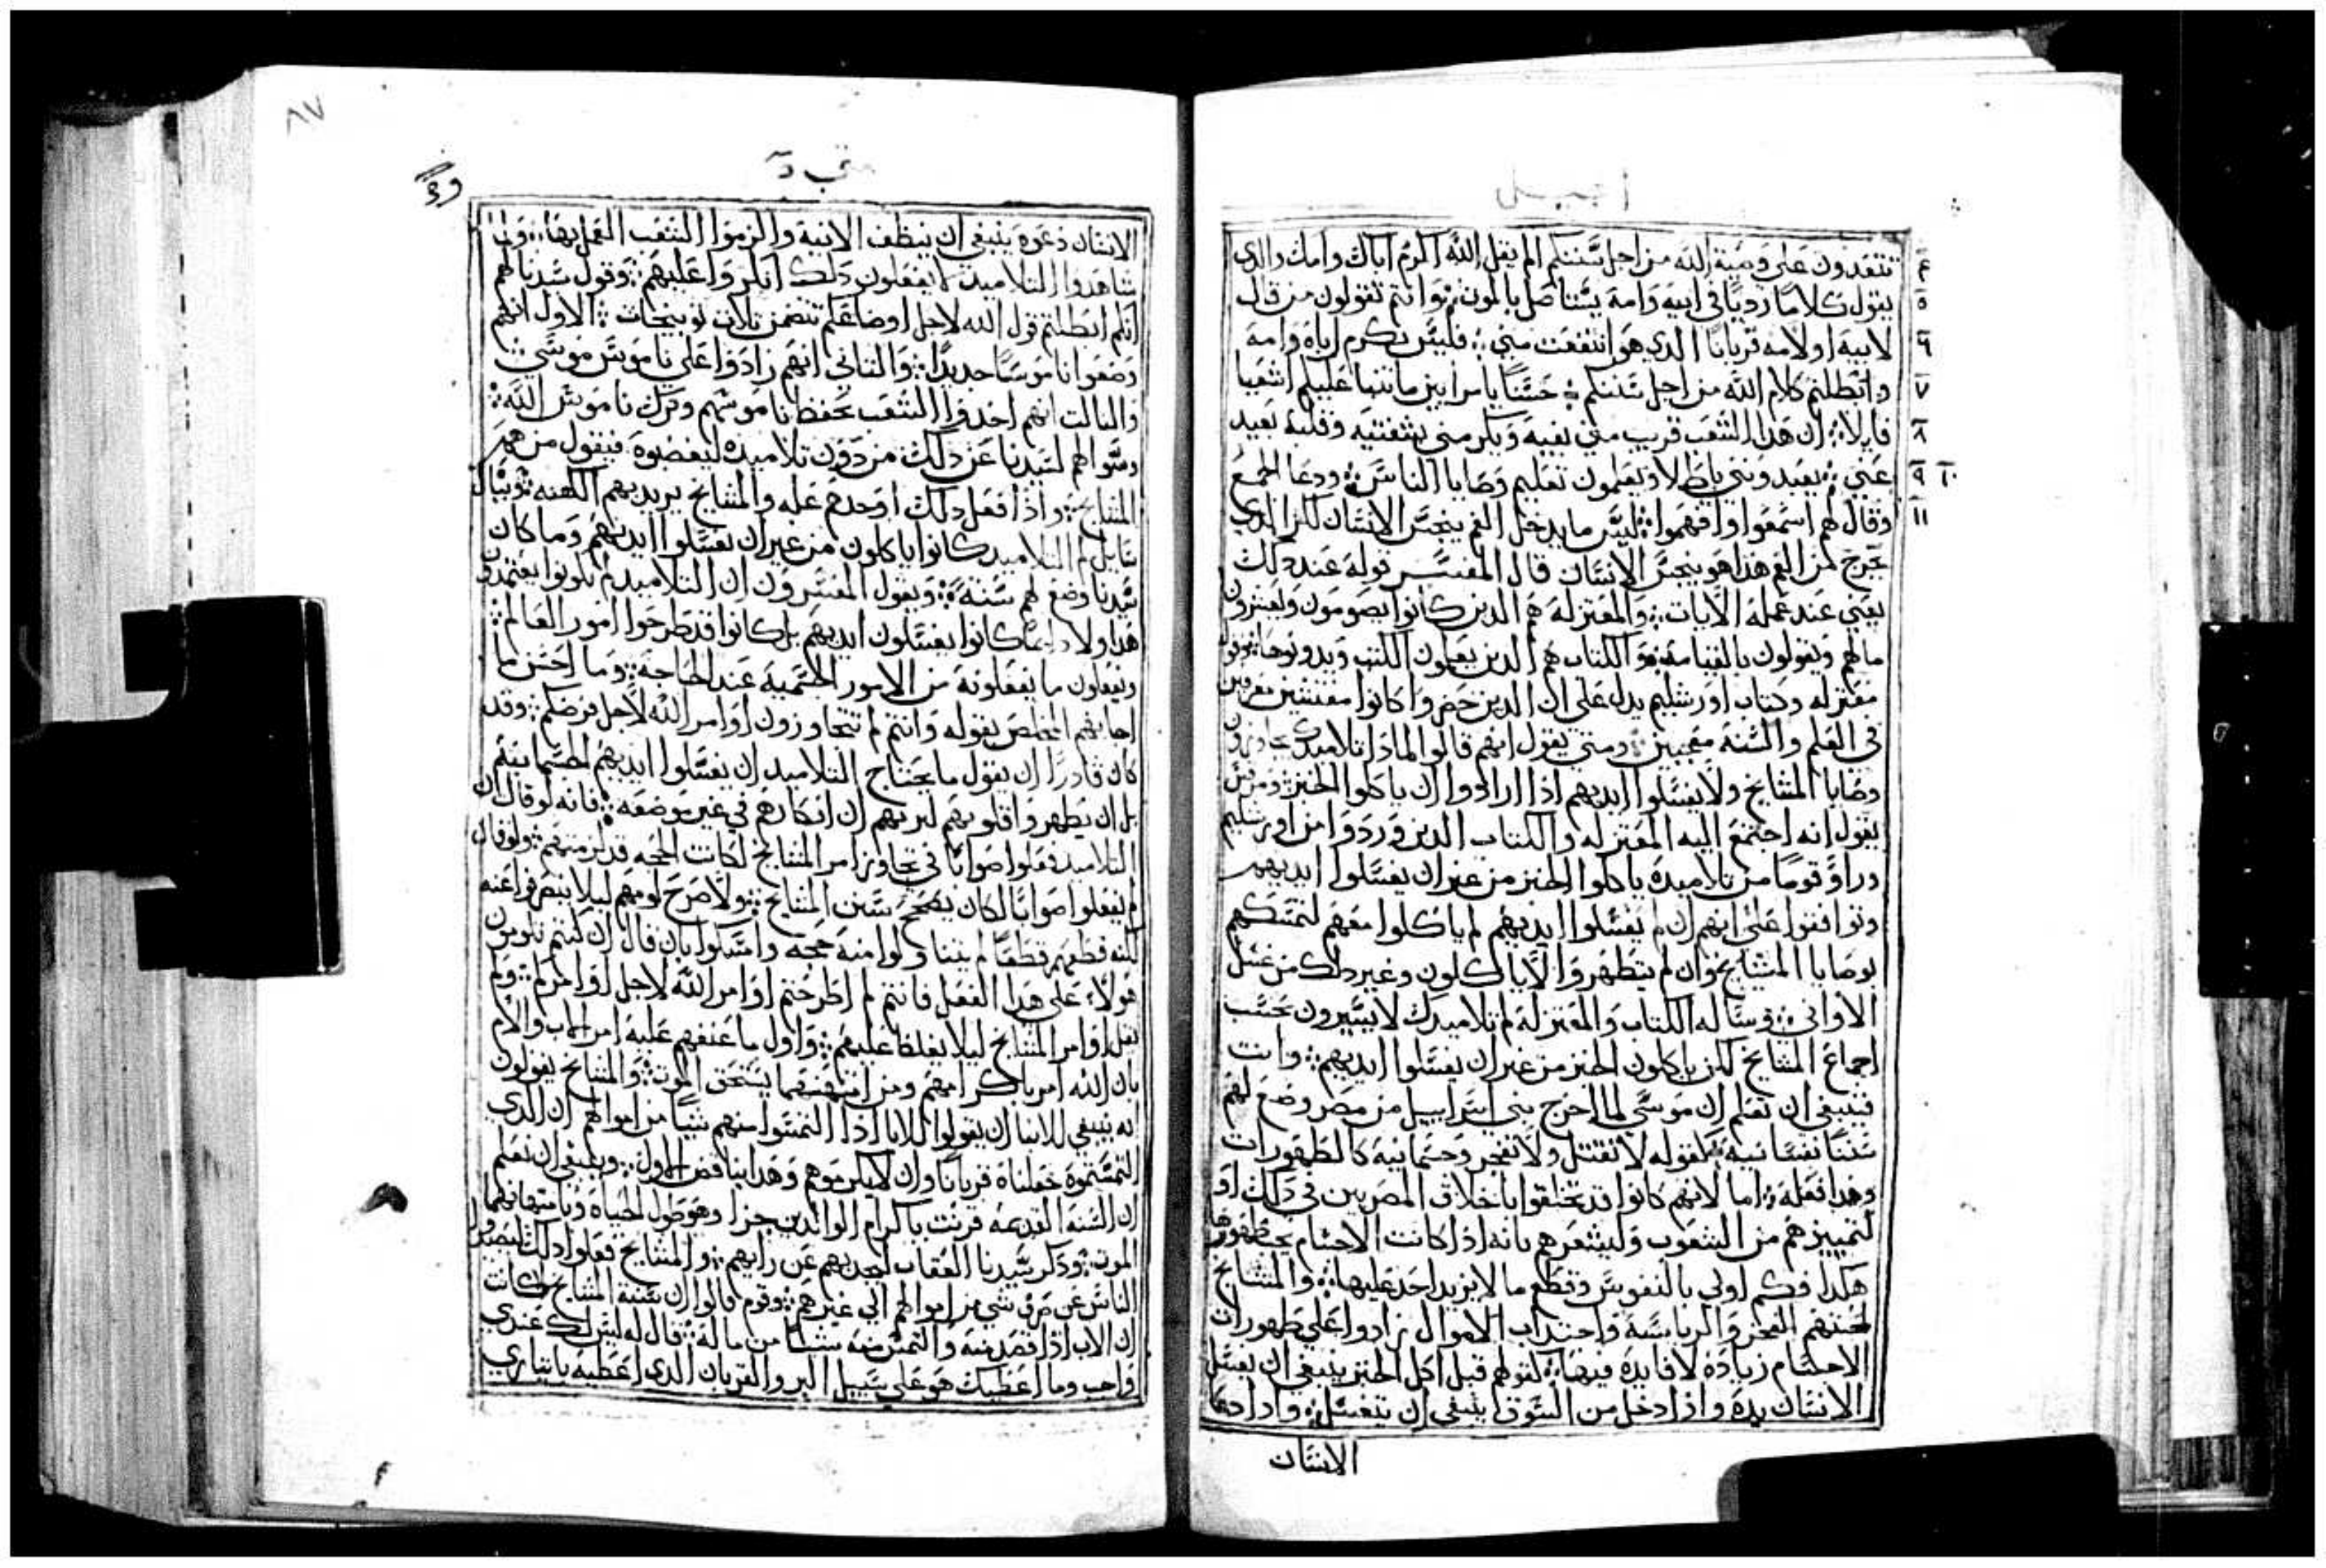 انجيل
تتعدون علي وصية الله من اجل سننكم الم يقل الله اكرم اباك وامك والدي
يقول كلاما رديا في ابيه وامه يستاصل بالموت ⁘ وانتم تقولون من قال
لابيه او لامه قربانا الدي هو انتفعت مني ⁘ فليس يكرم اباه وامه
وابطلتم كلام الله من اجل سننكم ⁘ حسنا يا مرايين ما تنبا عليكم اشعيا
قايلا ⁘ ان هدا الشعب قريب مني بفيه ويكرمني بشفتيه وقلبه بعيد
عني ⁘ يعبدونني باطلا ويعلمون تعليم وصايا الناس ⁘ ودعا الجمع
وقال لهم اسمعوا وافهموا ⁘ ليس ما يدخل الفم ينجس الانسان لكن الدي
يخرج من الفم هدا هو ينجس الانسان قال المفسر قوله عند دلك
يعني عند عمله الايات ⁘ والمعتزله هم الدين كانوا يصومون ويعشرون
مالهم ويقولون بالقيامه ⁘ والكتاب هم الدين يعملون الكتب ويدونوها ⁘
معتزله وكتاب اورشليم يدل علي ان الدين حضروا كانوا مفتشين معروفين
في العلم والسنه معجبين ⁘ ومتي يقول انهم قالوا لمادا تلاميدك يتجاوزون
وصايا المشايخ ولا يغسلوا ايديهم ادا ارادوا ان ياكلوا الخبز ⁘ ومرقس
يقول انه اجتمع اليه المعتزله والكتاب الدين وردوا من اورشليم
وراوا قوما من تلاميده ياكلوا الخبز من غير ان يغسلوا ايديهم
وتوافقوا علي انهم ان لم يغسلوا ايديهم لم ياكلوا معهم لتمسكهم
بوصايا المشايخ وان لم يتطهروا لا ياكلون وغير دلك من غسل
الاواني ⁘ وساله الكتاب والمعتزله لم تلاميدك لا يسيرون بحسب
اجماع المشايخ لكن ياكلون الخبز من غير ان يغسلوا ايديهم ⁘ وانت
فينبغي ان تعلم ان موسي لما اخرج بني اسراييل من مصر وضع لهم
سننا نفسانيه كقوله لا تقتل ولا تفجر وجسمانيه كالطهورات
وهدا فعله ⁘ اما لانهم كانوا قد تخلقوا باخلاق المصريين في دلك او
لتمييزهم من الشعوب وليشعرهم بانه ادا كانت الاجسام يجب طهورها
هكدا فكم اولي بالنفوس وقطع ما لا يزيد احد عليها ⁘ والمشايخ
لمحبتهم الفخر والرياسه واجتداب الاموال زادوا علي طهورات
الاجسام زياده لا فايده فيها ⁘ كقولهم قبل اكل الخبز ينبغي ان يغسل
الانسان يده وادا دخل من السوق ينبغي ان يتغسل ⁘ وادا دعا
الانسان
٤
٥
٦
٧
٨
٩ ١٠
١١
متي
٨٧
الانسان دعوه ينبغي ان ينظف الانيه والزموا الشعب العمل بها ⁘ ولما
شاهدوا التلاميد لا يفعلون دلك انكروا عليهم ⁘ وقول سيدنا لهم
انكم ابطلتم قول الله لاجل اوضاعكم تتضمن تلات توبيخات ⁘ الاول انهم
وضعوا ناموسا جديدا ⁘ والتاني انهم زادوا علي ناموس موسي ⁘
والتالت انهم اخدوا الشعب بحفظ ناموسهم وترك ناموس الله ⁘
وسوالهم لسيدنا عن دلك من دون تلاميده ليغضبوه فيقول من هم
المشايخ ⁘ وادا فعل دلك اوجدهم عله والمشايخ يريد بهم الكهنه ⁘ ويسال
سايل لم التلاميد كانوا ياكلون من غير ان يغسلوا ايديهم وما كان
سيدنا وضع لهم سنه ⁘ ويقول المفسرون ان التلاميد لم يكونوا يعتمدون
هدا ولا دايما كانوا يغسلون ايديهم بل كانوا قد طرحوا امور العالم ⁘
ويفعلون ما يفعلونه من الامور الجسميه عند الحاجه ⁘ وما احسن ما
اجابهم المخلص بقوله وانتم لم تتجاوزون اوامر الله لاجل فرضكم ⁘ وقد
كان قادرا ان يقول ما يحتاج التلاميد ان يغسلوا ايديهم الجسمانيه
بل ان يطهروا قلوبهم ليريهم ان انكارهم في غير موضعه ⁘ فانه لو قال ان
التلاميد فعلوا صوابا في تجاوز امر المشايخ لكانت الحجه قد لزمتهم ⁘ ولو قال
لم يفعلوا صوابا لكان يصحح سنن المشايخ ⁘ ولا صرح لومهم ليلا ينصرفوا عنه
لكنه قطعهم قطعا لم يتناولوا منه حجه وامسكوا بان قال ان كنتم تلومون
هولاء علي هدا الفعل فانتم لم اطرحتم اوامر الله لاجل اوامركم ⁘ ولم
يقل اوامر المشايخ ليلا يغلظ عليهم ⁘ واول ما عنفهم عليه امر الاب والام
بان الله امر باكرامهم ومن امتهنهما يستحق الموت ⁘ والمشايخ يقولون
انه ينبغي للابنا ان يقولوا للابا ادا التمسوا منهم شيا من اموالهم ان الدي
التمستموه جعلناه قربانا وان لا يكرموهم وهدا يناقض الاول ⁘ وينبغي ان تعلم
ان السنه القديمه قرنت باكرام الوالدين جزا وهو طول الحياه وبامتهانهما
الموت ⁘ ودكر سيدنا العقاب ليجديهم عن رايهم ⁘ والمشايخ فعلوا دلك ليصدوا
الناس عن صرف شي من اموالهم الي غيرهم ⁘ وقوم قالوا ان سنة المشايخ كانت
ان الاب ادا قصد ابنه والتمس منه شيا من ماله ⁘ قال له ليس لك عندي
واجب وما اعطيك هو علي سبيل البر والقربان الدي اعطيه باختياري